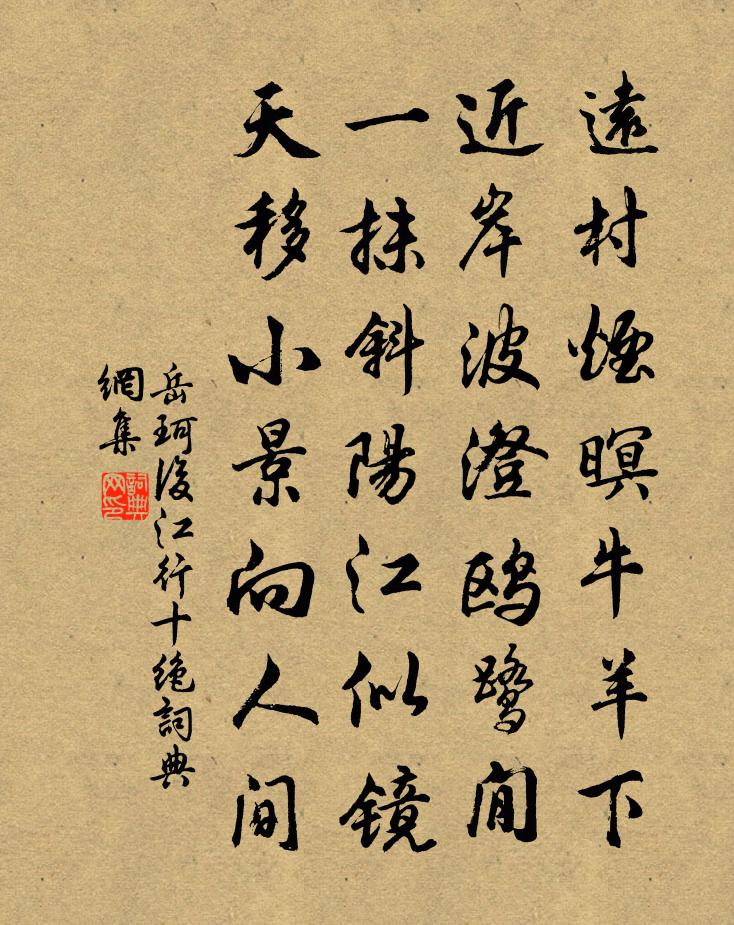 遠村煙暝牛羊下
近岸波澄鷗鷺閒
一抹斜陽江似镜
天移小景向人間
岳珂後江行十绝詞典
網集
詞典
网印